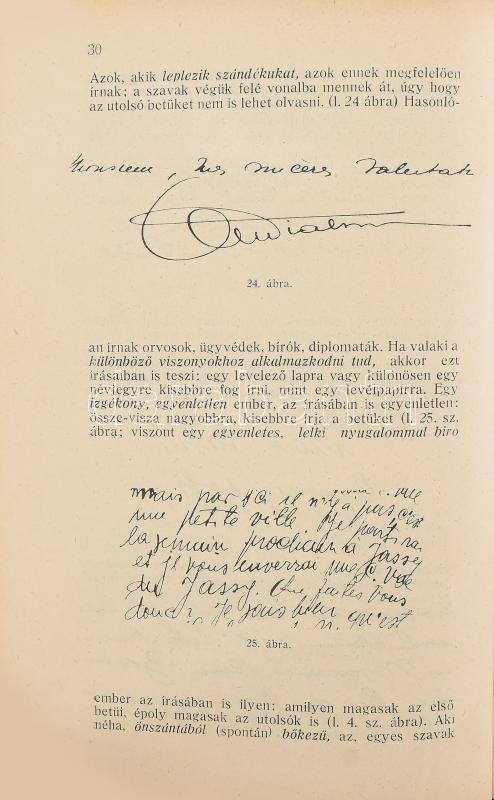 30
Azok, akik leplezik szándékukat, azok ennek megfelelően
írnak; a szavak végük felé vonalba mennek át, úgy hogy
az utolsó betüket nem is lehet olvasni. (l. 24 ábra) Hasonló-
mes sincères
24. ábra.
an írnak orvosok, ügyvédek, bírók, diplomaták. Ha valaki a
különböző viszonyokhoz alkalmazkodni tud, akkor ezt
írásában is teszi: egy levelező lapra vagy különösen egy
névjegyre kisebbre fog írni, mint egy levélpapírra. Egy
izgékony, egyenletlen ember, az írásában is egyenletlen:
össze-vissz nagyobbra, kisebbre írja a betüket (l. 25. sz.
ábra; viszont egy egyenletes, lelki nyugalommal biro
mais par
une petite ville
la prochain à Jassy
et je vous enverrai une
de Jassy. Que faites vous
donc? Je suis bien
qu'est
25. ábra.
ember az írásában is ilyen: amilyen magasak az első
betüi, époly magasak az utolsók is (l. 4. sz. ábra). Aki
néha, önszántából (spontán) bőkezű, az, egyes szavak